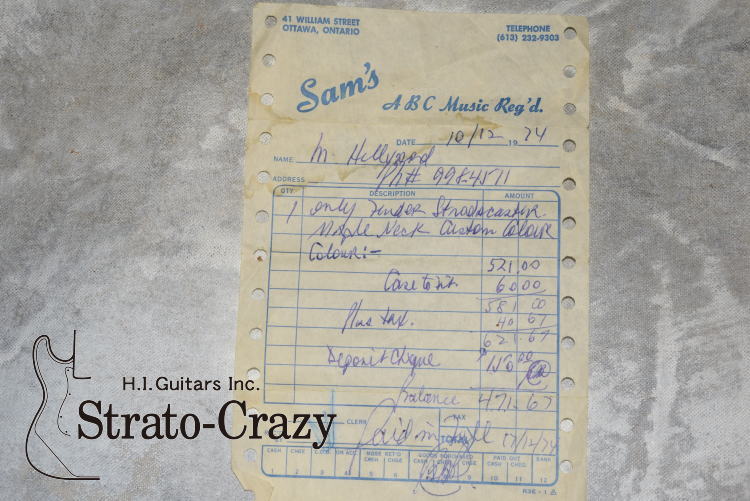 41 WILLIAM STREET
OTTAWA, ONTARIO
TELEPHONE
(613) 232-9303
Sam's
A B C Music Reg'd.
DATE 10/12 19 74
NAME M. Hellyard
Ph# 9984511
ADDRESS
QTY. DESCRIPTION AMOUNT
1 only Fender Stratocaster
Maple Neck Custom Colour
Colour:-
521.00
Case to fit 60 00
581 00
Plus tax. 40 67
621.67
Deposit Cheque 150 00
Balance 471.67
CLERK TAX
Paid in full
TOTAL
CASH CHGE C.O.D. ON ACC. MDSE RET'D CASH CHGE GOODS PURCHASED CHGE PAID OUT CASH CHEQ. BANK
1 2 3 4 5 6 9 10 11 12
H.I.Guitars Inc.
Strato-Crazy